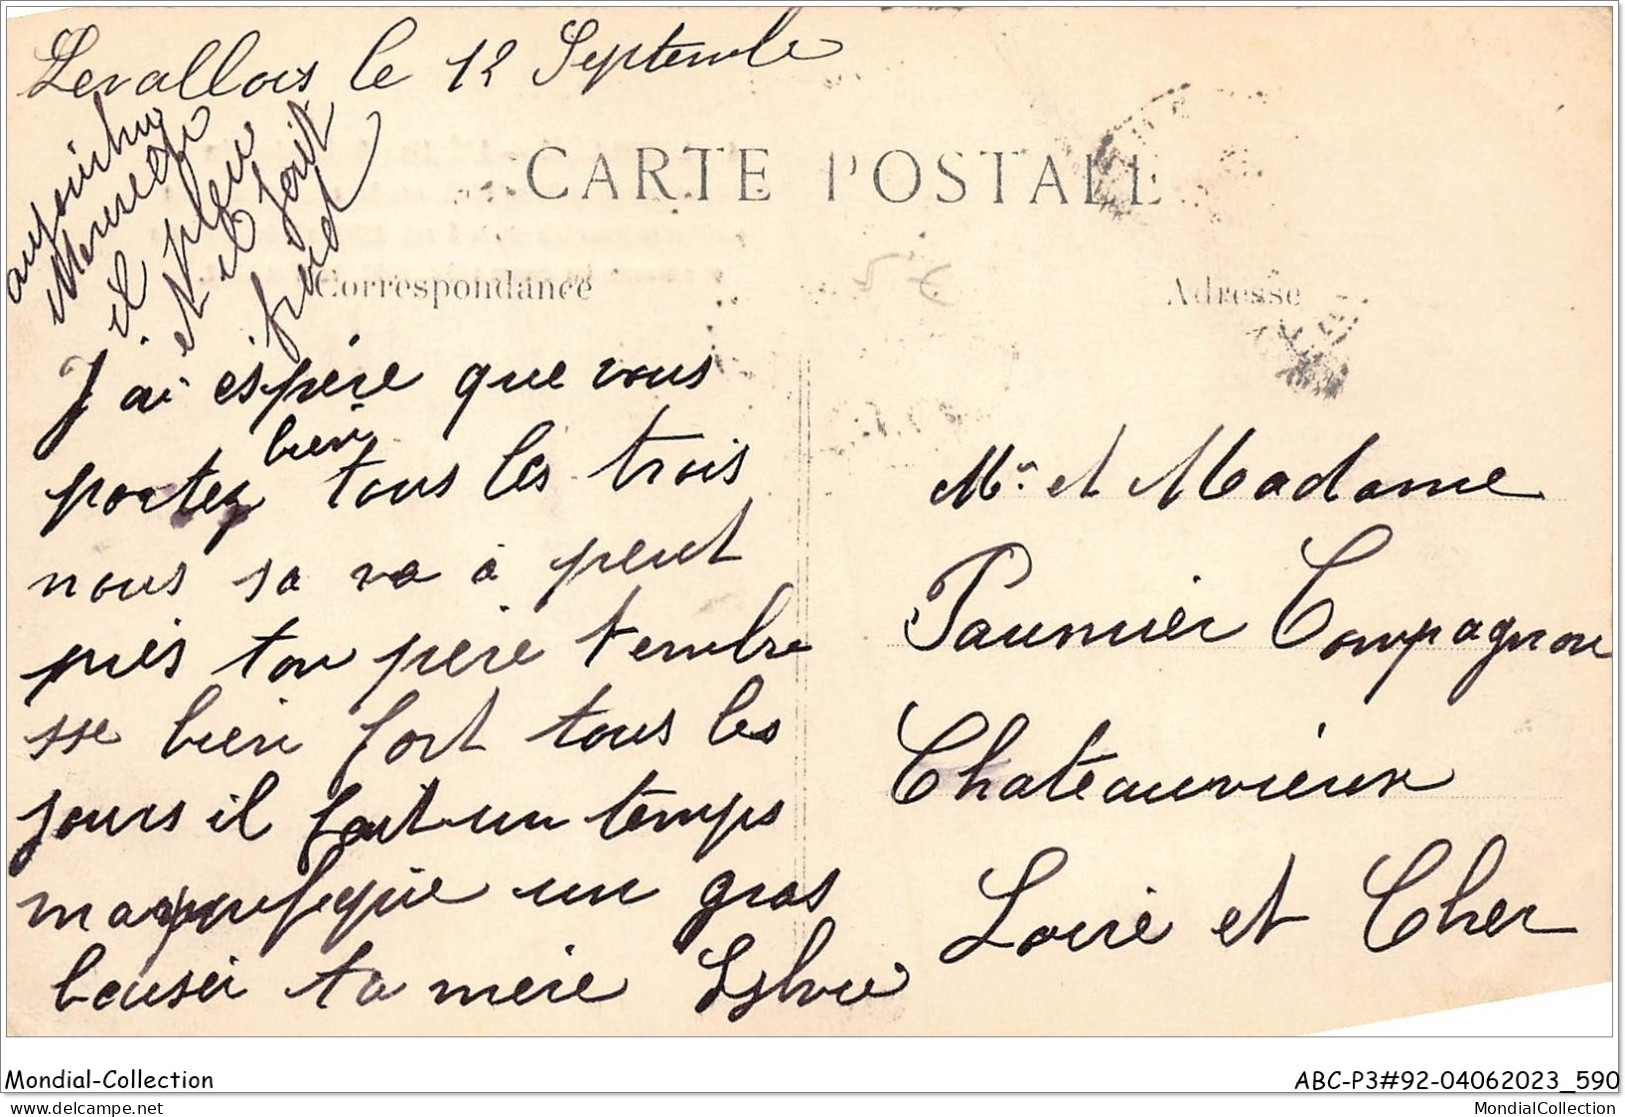 Levallois le 12 Septembre
aujourdhui
Mercredi
il pleu
et il fait
froid
CARTE POSTALE
Correspondance
Adresse
J'ai éspére que vous
portez bien tous les trois
nous sa va à peut
près ton père t'embra
sse bien fort tous les
jours il fait un temps
magnifique un gros
baiser ta mère Sylvie
Mr et Madame
Paumier Compagnon
Chateauvieux
Loire et Cher
Mondial-Collection
ABC-P3#92-04062023_590
delcampe.net
MondialCollection